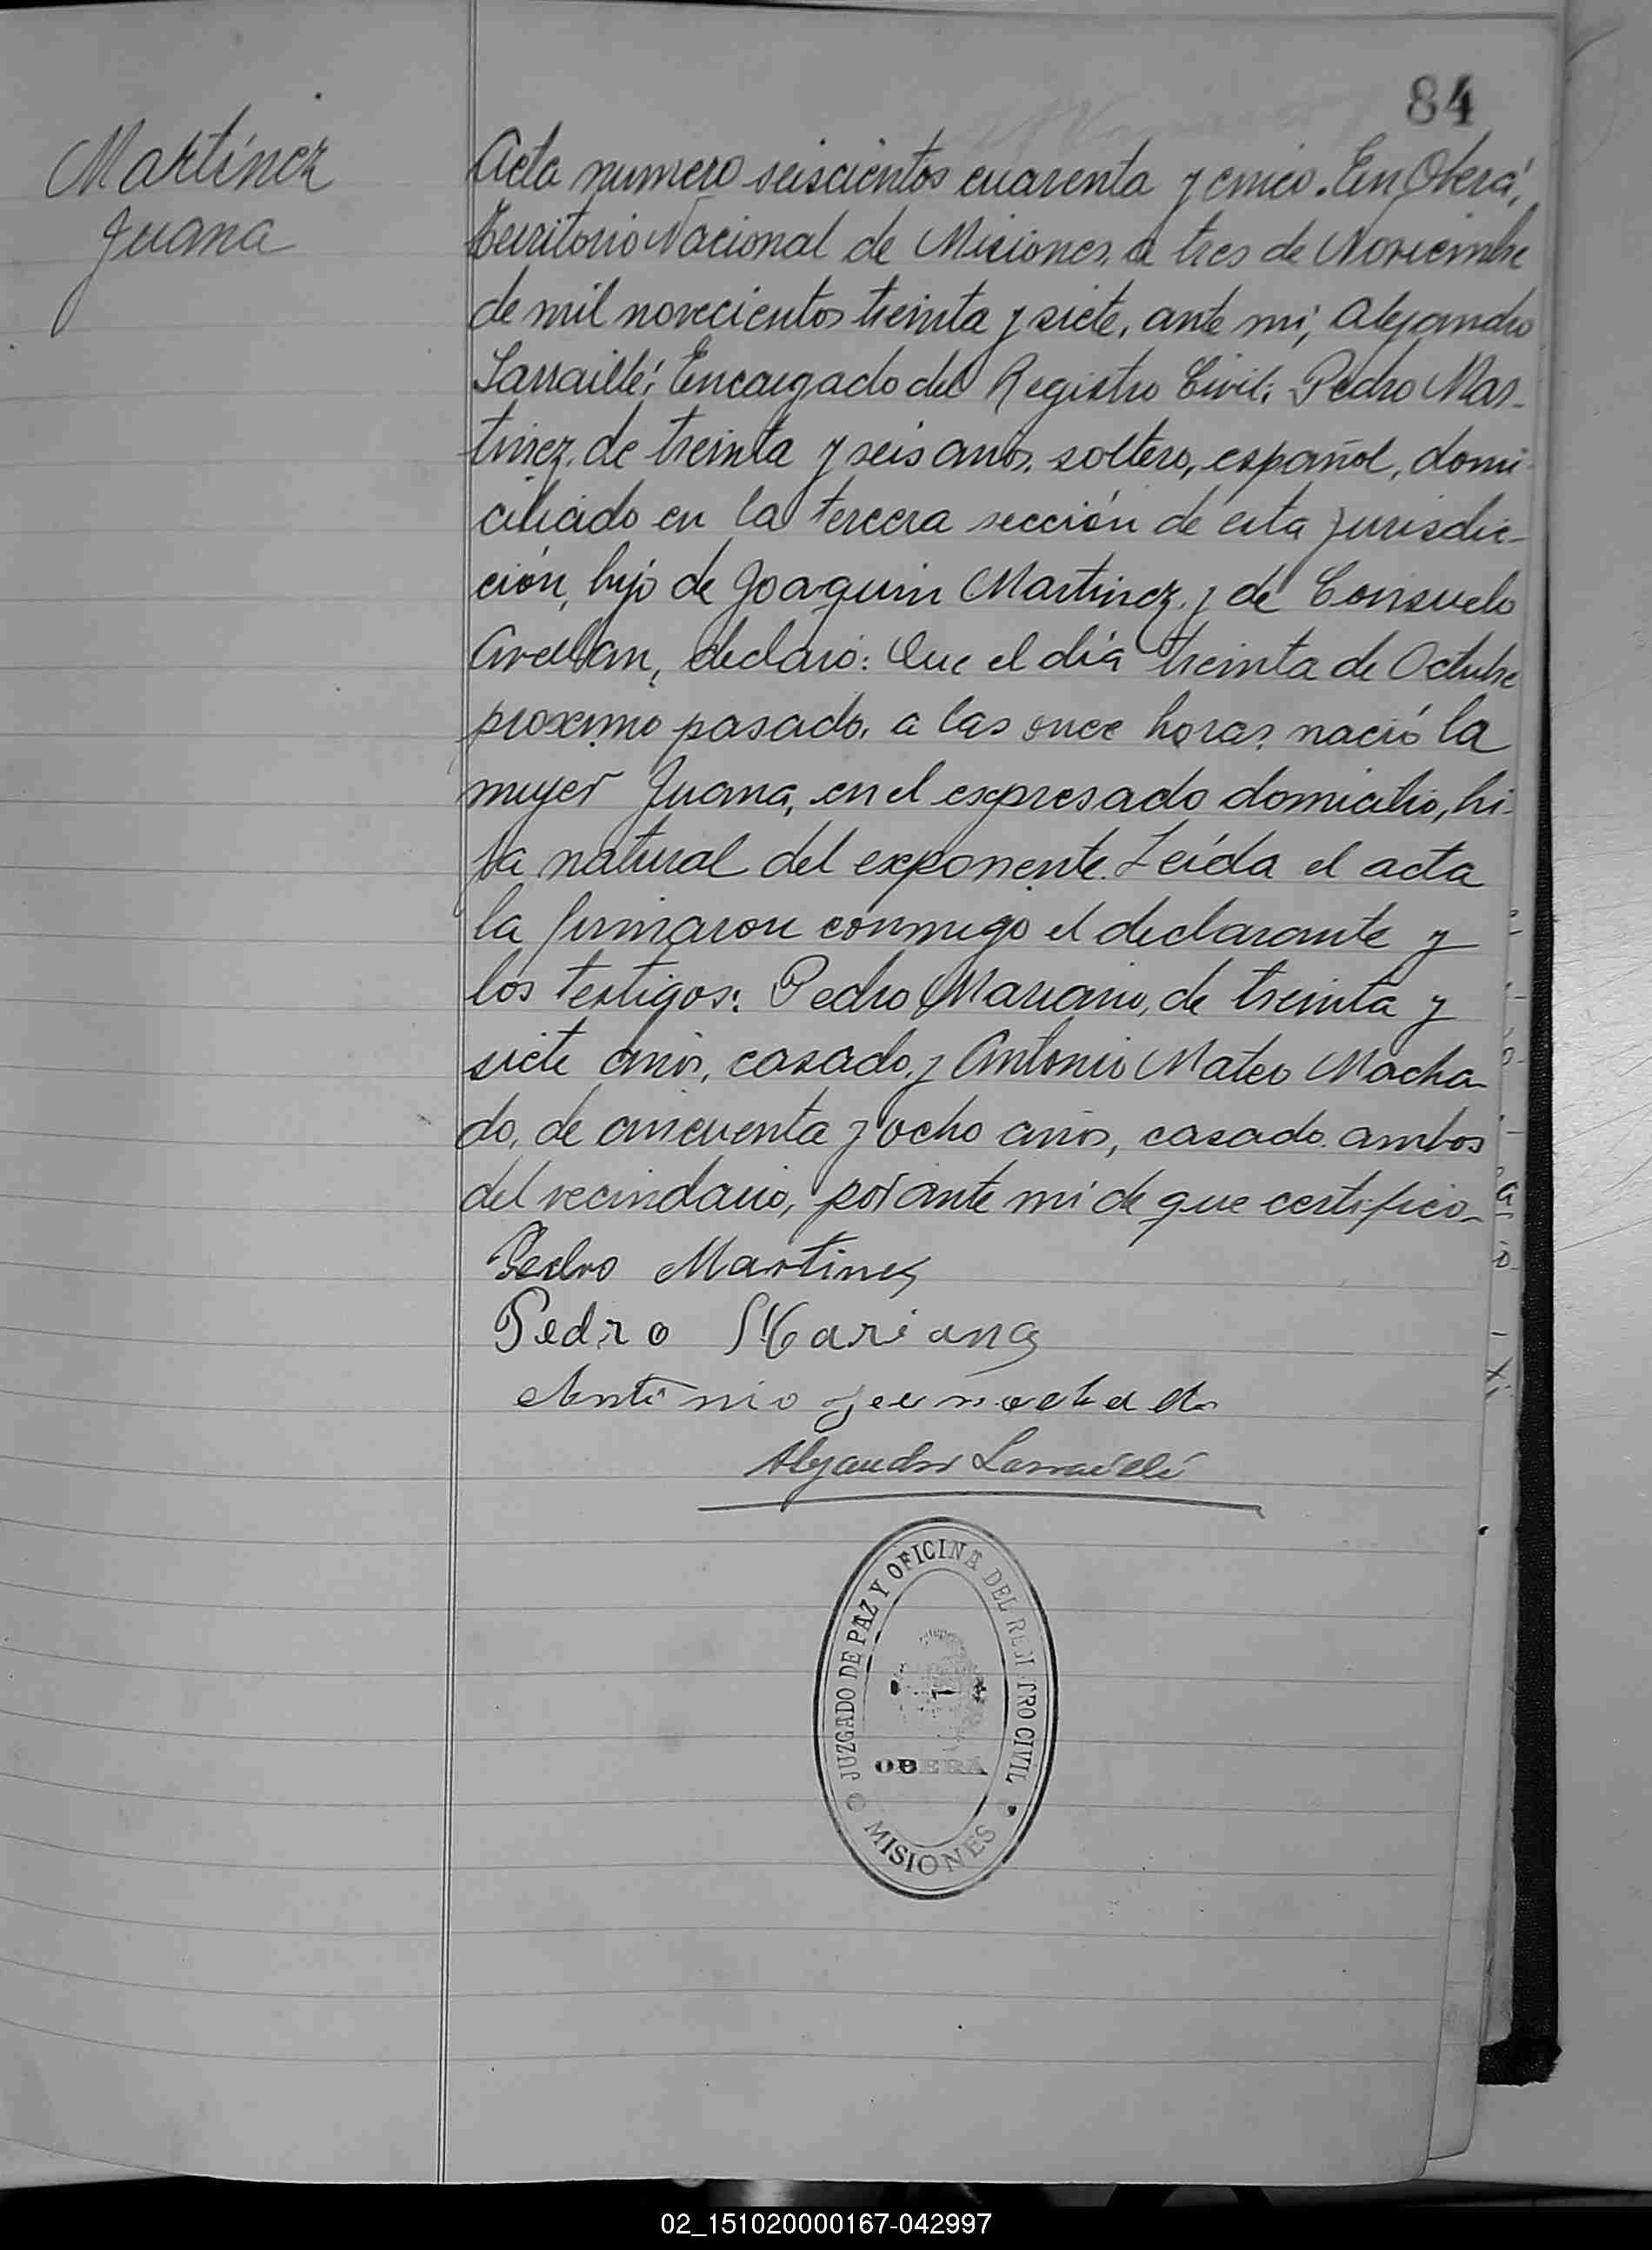 84
Martínez
Juana
Acta numero seiscientos cuarenta y cinco. En Oberá,
Territorio Nacional de Misiones, a tres de Noviembre
de mil novecientos treinta y siete, ante mí, Alejandro
Larraillé, Encargado del Registro Civil; Pedro Mar-
tinez, de treinta y seis años, soltero, español, domi-
ciliado en la tercera sección de esta jurisdic-
ción, hijo de Joaquin Martinez, y de Consuelo
Arellan, declaró: Que el día treinta de Octubre
proximo pasado, a las once horas, nació la
mujer Juana, en el expresado domicilio, hi-
ja natural del exponente. Leída el acta
la firmaron conmigo el declarante y
los testigos: Pedro Mariano, de treinta y
siete años, casado, y Antonio Mateo Macha-
do, de cincuenta y ocho años, casado, ambos
del vecindario, por ante mí de que certifico-
Pedro Martines
Pedro Mariano
Antonio
Alejandro Larraillé
JUZGADO DE PAZ Y OFICINA DEL REGISTRO CIVIL
OBERÁ
MISIONES
02_151020000167-042997